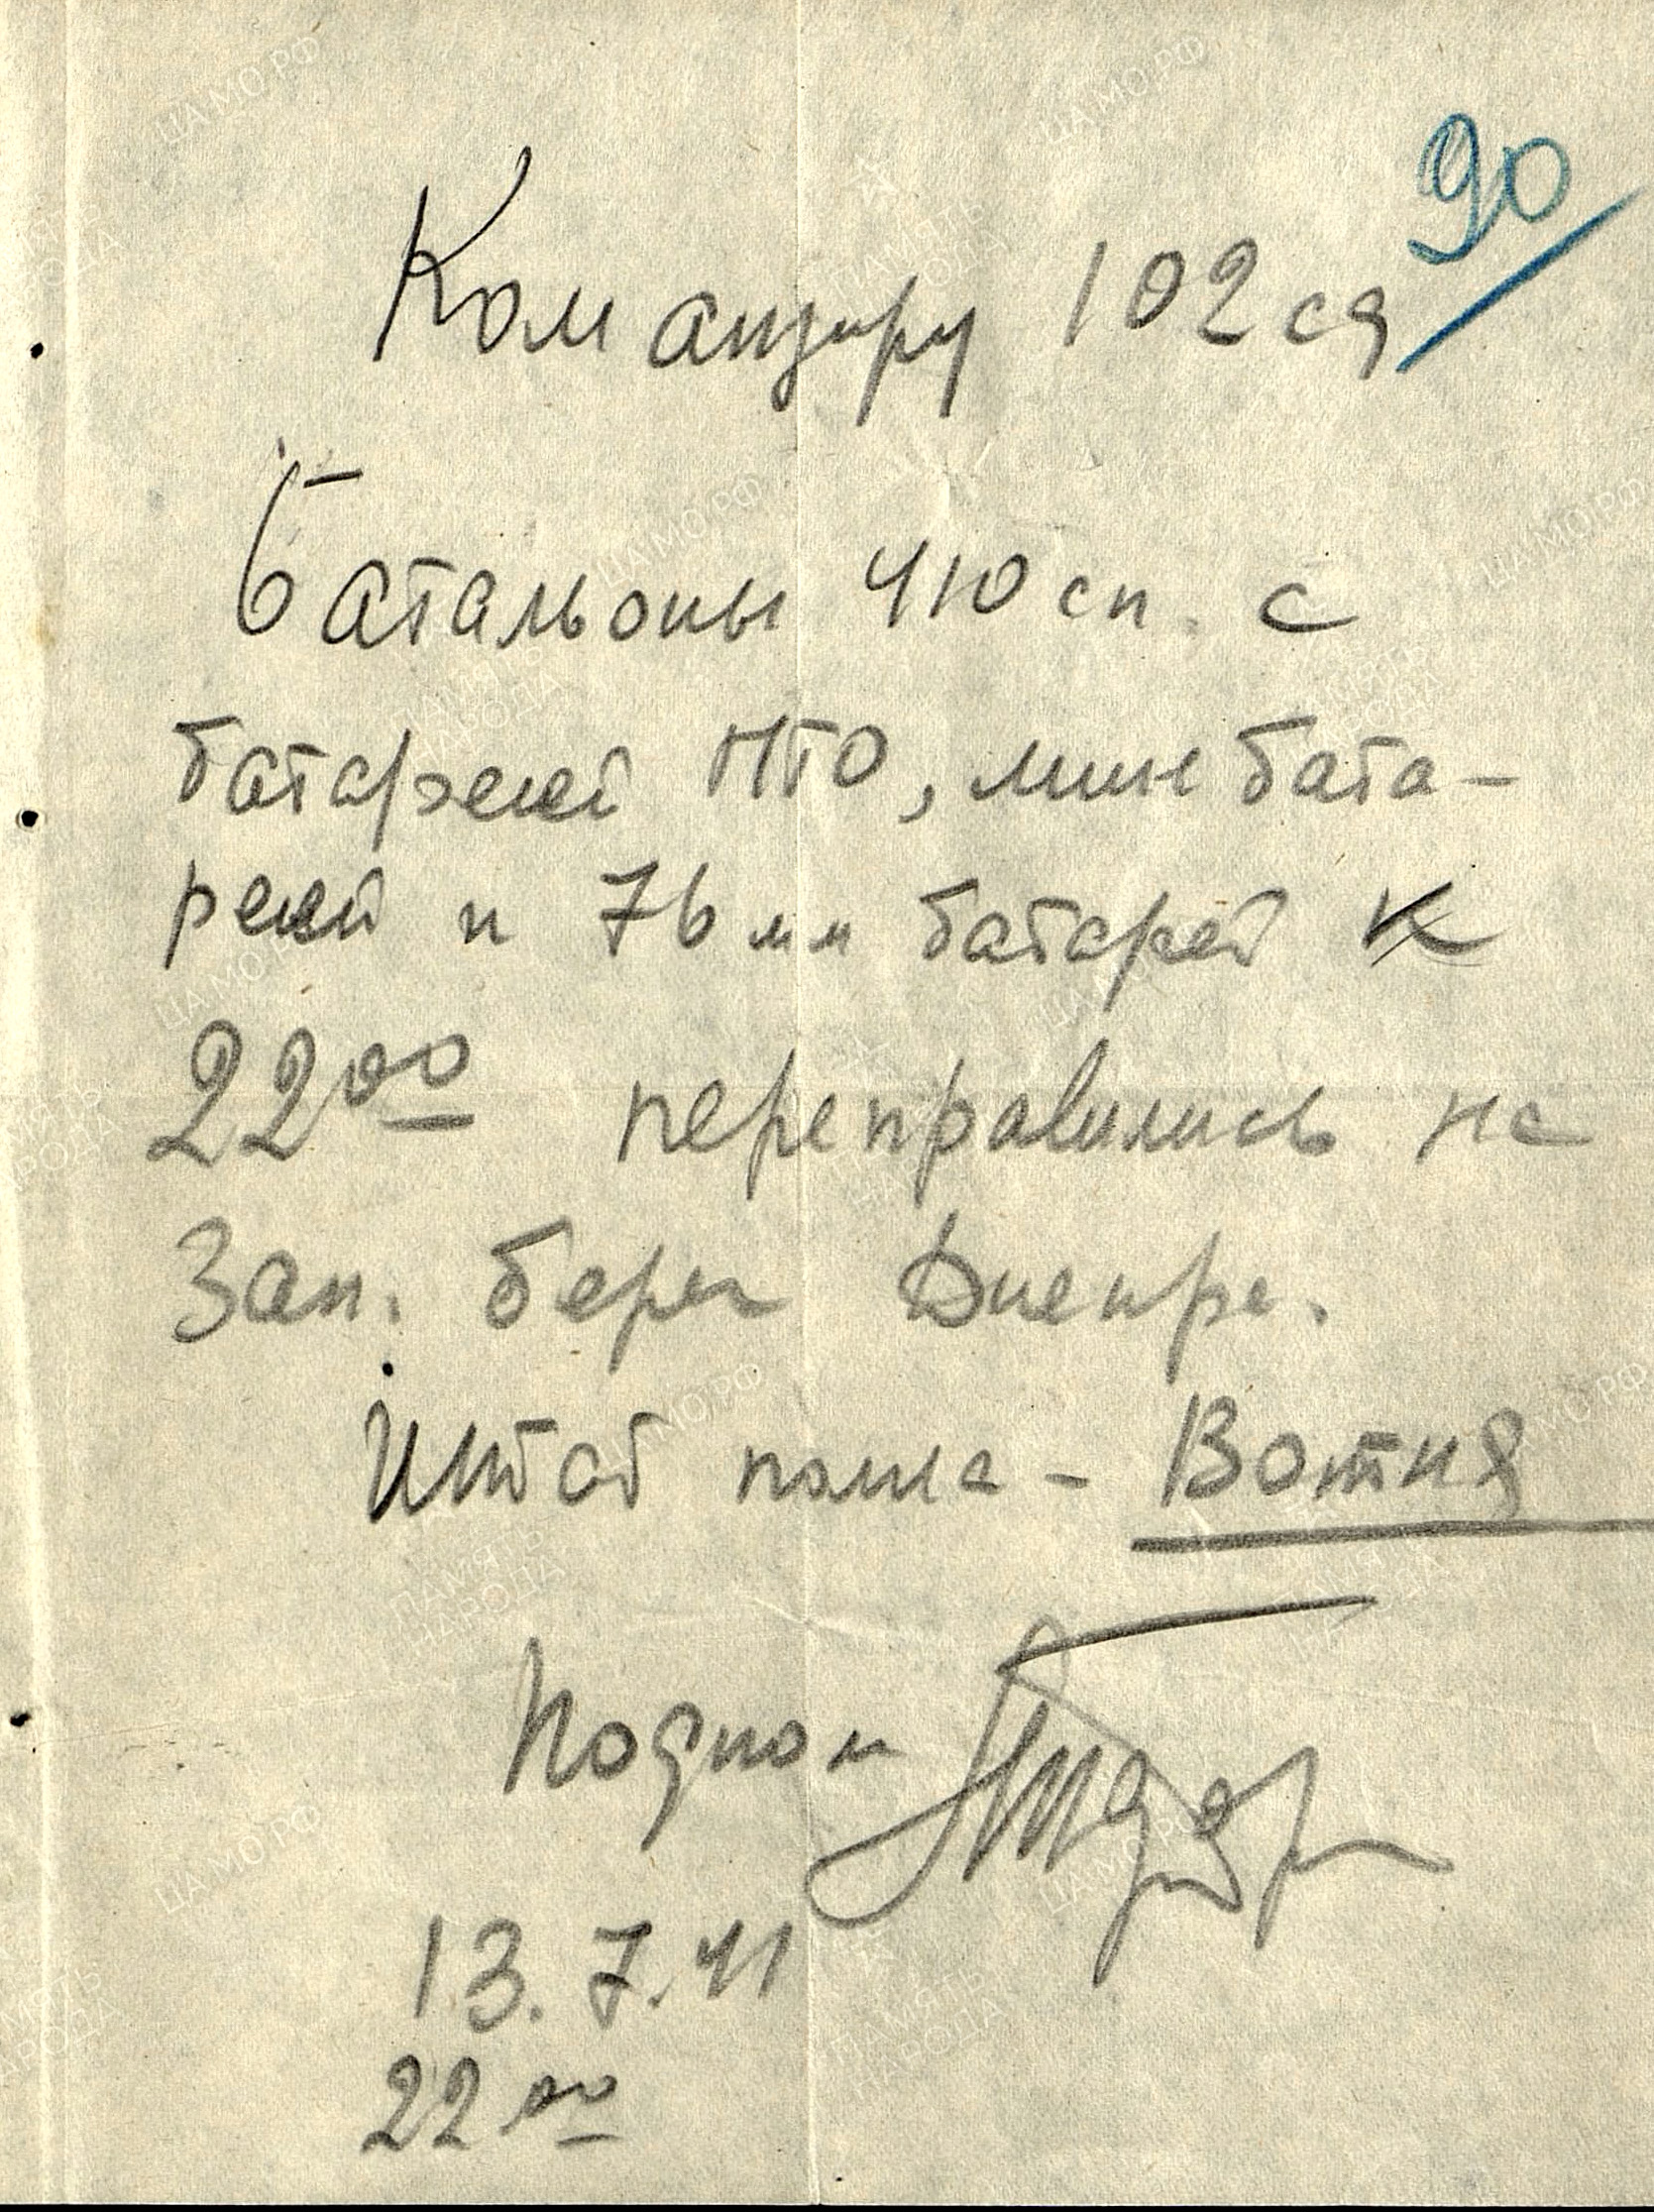 90
Командиру 102 сд
Батальоны 410 сп с
батареей ПТО, минбата-
реей и 76 мм батарей к
22 00 переправились на
Зап. берег Днепра.
Штаб полка - Вотня
Подполк
13.7.41
22 00